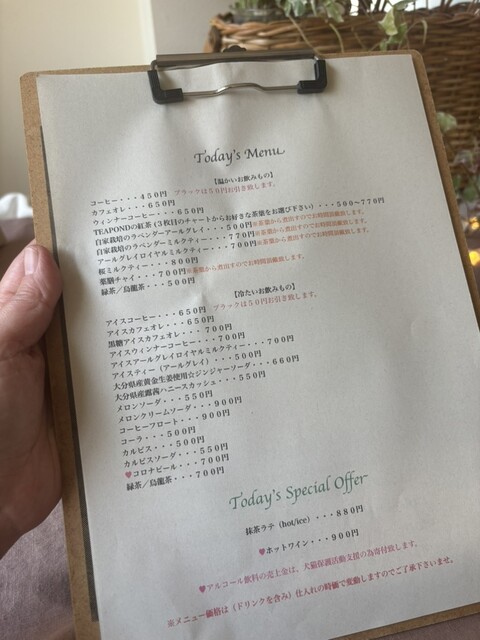 Today's Menu
【温かいお飲みもの】
コーヒー・・・４５０円 ブラックは５０円お引き致します。
カフェオレ・・・６５０円
ウィンナーコーヒー・・・６５０円
TEAPONDの紅茶（３枚目のチャートからお好きな茶葉をお選び下さい）・・・５００～７７０円
自家栽培のラベンダーアールグレイ・・・５００円※茶葉から煮出すのでお時間頂戴致します。
自家栽培のラベンダーミルクティー・・・７７０円※茶葉から煮出すのでお時間頂戴致します。
アールグレイロイヤルミルクティー・・・７００円※茶葉から煮出すのでお時間頂戴致します。
桜ミルクティー・・・８００円
薬膳チャイ・・・７００円※茶葉から煮出すのでお時間頂戴致します。
緑茶／烏龍茶・・・５００円
【冷たいお飲みもの】
アイスコーヒー・・・６５０円 ブラックは５０円お引き致します。
アイスカフェオレ・・・６５０円
黒糖アイスカフェオレ・・・７００円
アイスウィンナーコーヒー・・・７００円
アイスアールグレイロイヤルミルクティー・・・７００円
アイスティー（アールグレイ）・・・５００円
大分県産黄金生姜使用☆ジンジャーソーダ・・・６６０円
大分県産露茜ハニースカッシュ・・・５５０円
メロンソーダ・・・５５０円
メロンクリームソーダ・・・９００円
コーヒーフロート・・・９００円
コーラ・・・５００円
カルピス・・・５００円
カルピスソーダ・・・５５０円
♥コロナビール・・・７００円
緑茶／烏龍茶・・・７００円
Today's Special Offer
抹茶ラテ（hot/ice）・・・８８０円
♥ホットワイン・・・９００円
♥アルコール飲料の売上金は、犬猫保護活動支援の為寄付致します。
※メニュー価格は（ドリンクを含み）仕入れの時価で変動しますのでご了承下さいませ。